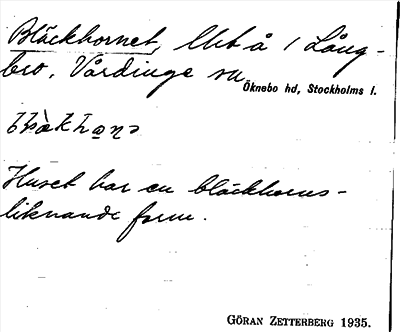 Bläckhornet, lht å 1 Lång-
bro, Vårdinge sn
Öknebo hd, Stockholms l.
Huset har en bläckhorns-
liknande form.
GÖRAN ZETTERBERG 1935.